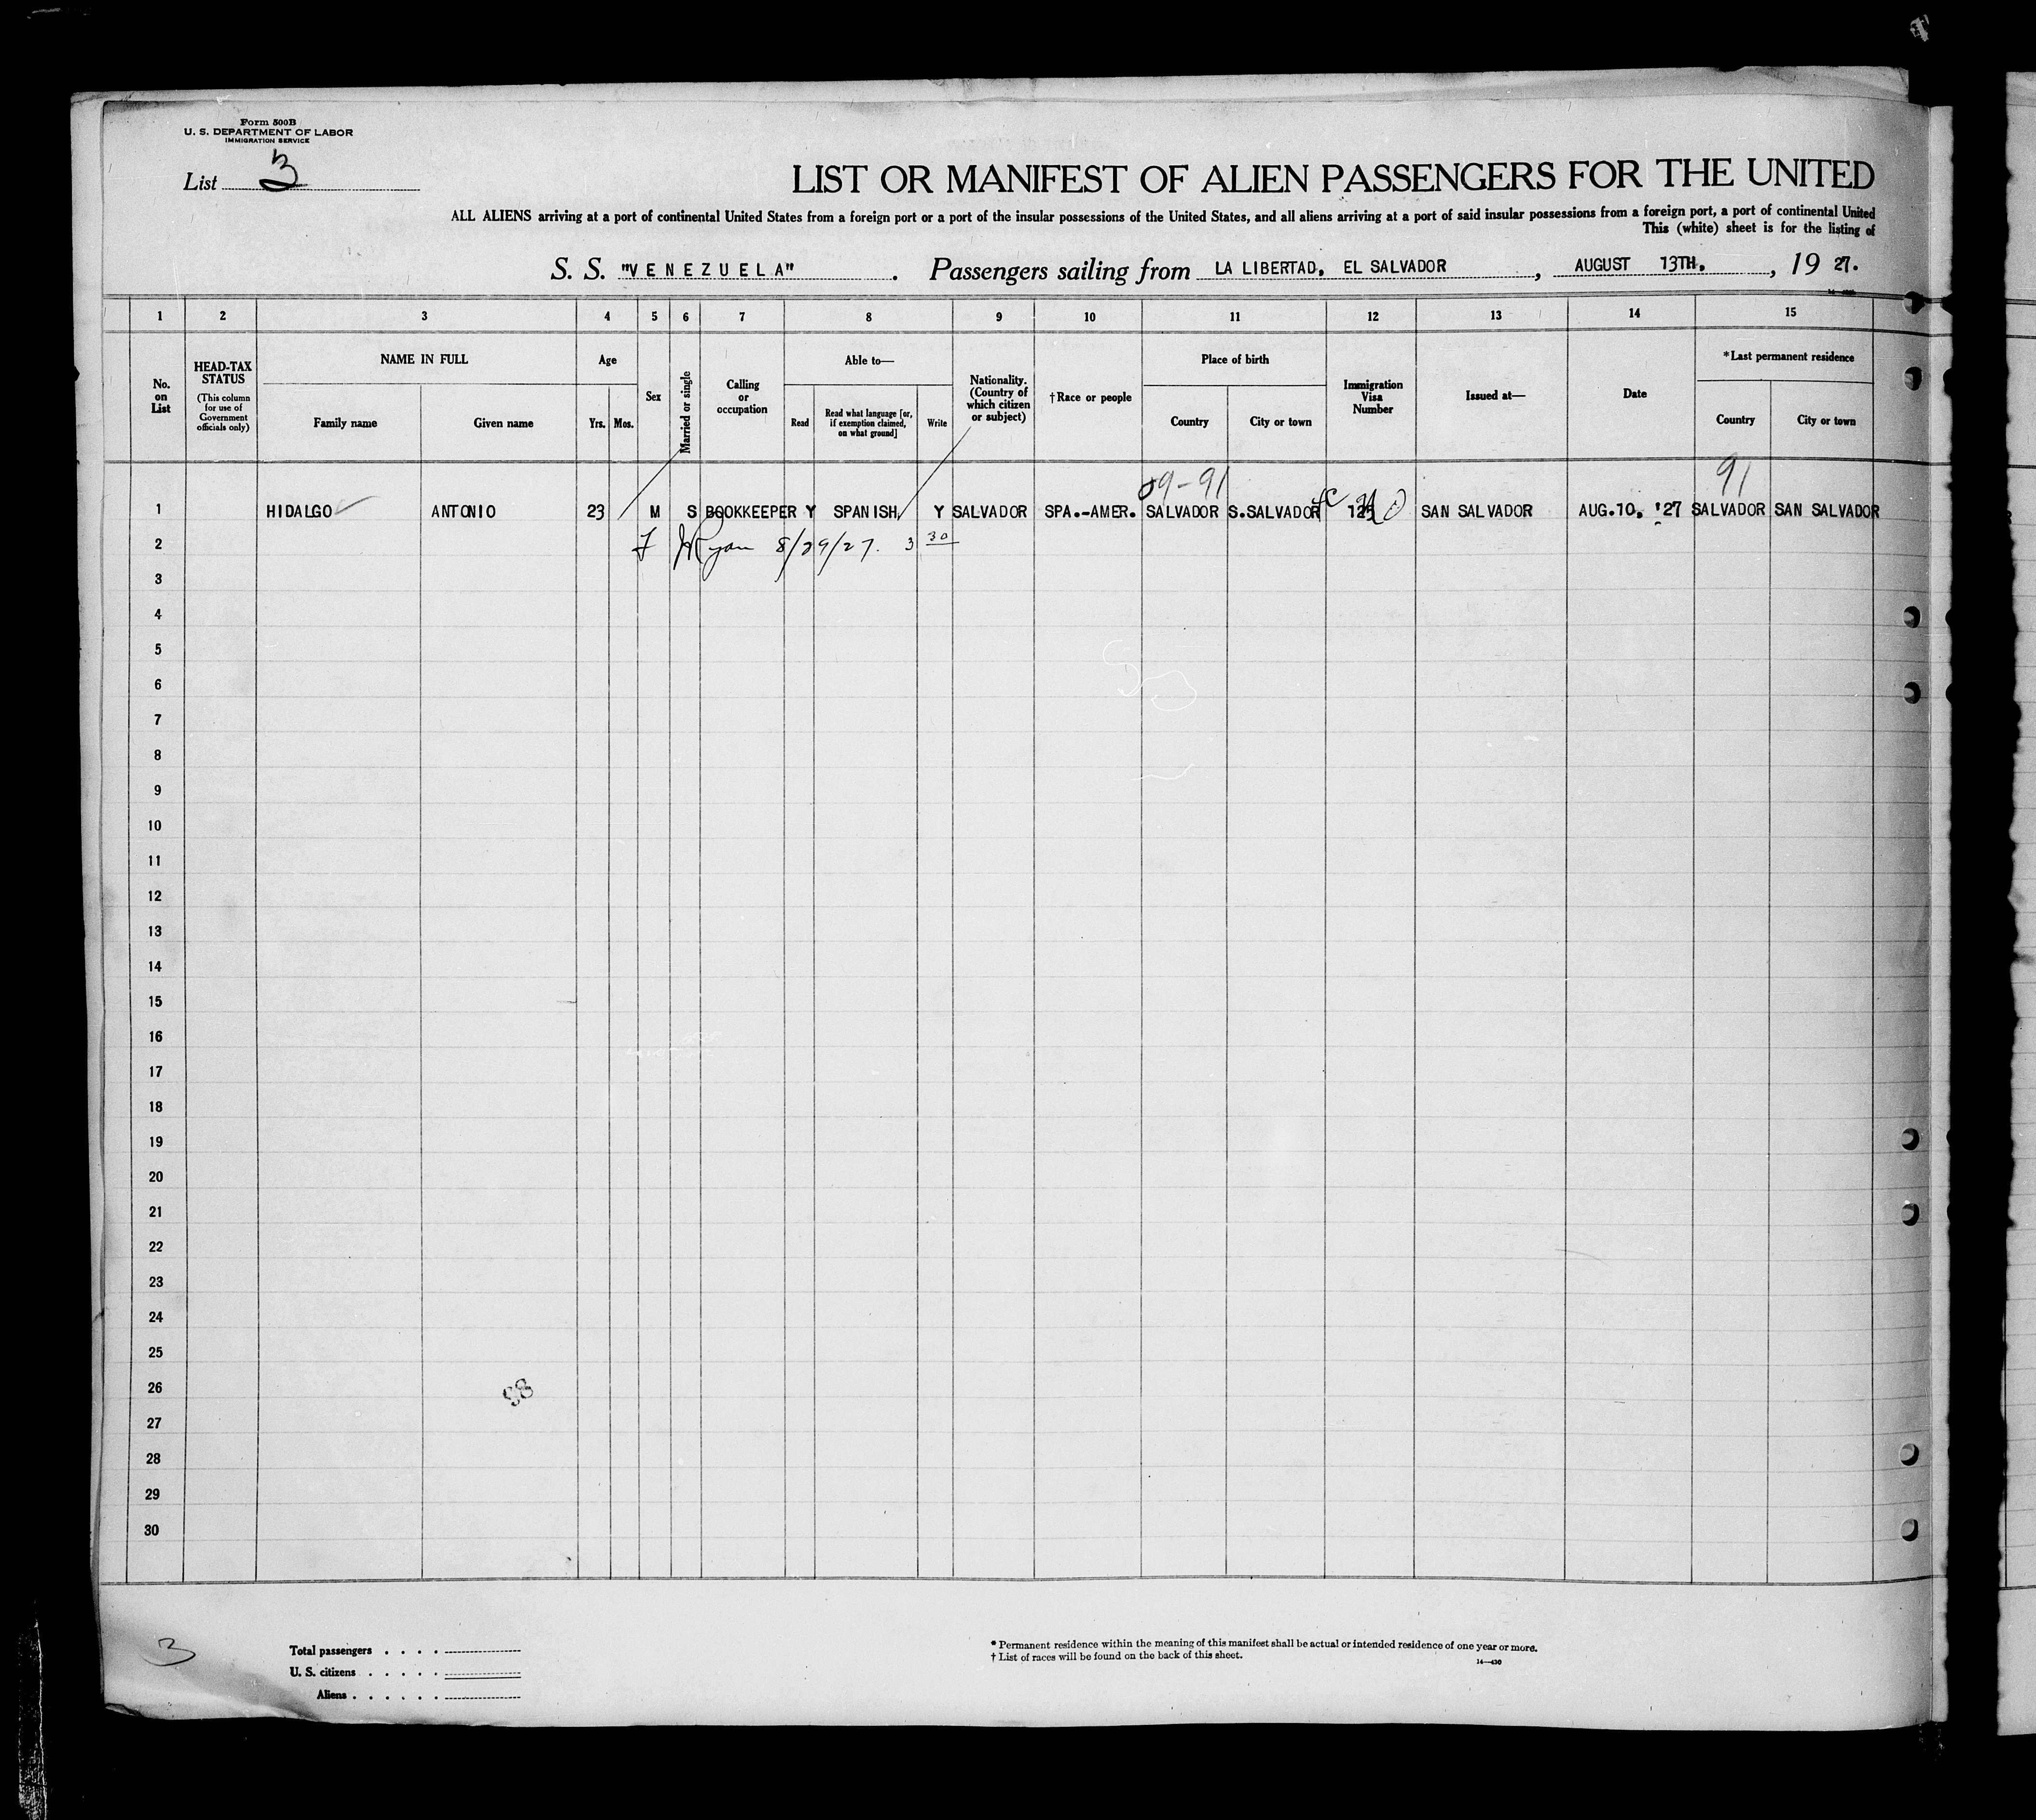 Form 500B
U. S. DEPARTMENT OF LABOR
IMMIGRATION SERVICE
List 3
LIST OR MANIFEST OF ALIEN PASSENGERS FOR THE UNITED
ALL ALIENS arriving at a port of continental United States from a foreign port or a port of the insular possessions of the United States, and all aliens arriving at a port of said insular possessions from a foreign port, a port of continental United
This (white) sheet is for the listing of
S. S. "VENEZUELA". Passengers sailing from LA LIBERTAD, EL SALVADOR, AUGUST 13TH, 19 27.
1 2 3 4 5 6 7 8 9 10 11 12 13 14 15
No. on List
HEAD-TAX STATUS (This column for use of Government officials only)
NAME IN FULL
Family name Given name
Age
Yrs. Mos.
Sex
Married or single
Calling or occupation
Able to—
Read
Read what language [or, if exemption claimed, on what ground]
Write
Nationality. (Country of which citizen or subject)
†Race or people
Place of birth
Country City or town
Immigration Visa Number
Issued at—
Date
*Last permanent residence
Country City or town
91
1 HIDALGO ANTONIO 23 M S BOOKKEEPER Y SPANISH Y SALVADOR SPA.-AMER. SALVADOR S.SALVADOR SAN SALVADOR AUG.10, '27 SALVADOR SAN SALVADOR
2 Ryan 8/29/27. 3 30
3
4
5
6
7
8
9
10
11
12
13
14
15
16
17
18
19
20
21
22
23
24
25
26
27
28
29
30
98
3
Total passengers . . . .
U. S. citizens . . . . .
Aliens . . . . . .
* Permanent residence within the meaning of this manifest shall be actual or intended residence of one year or more.
† List of races will be found on the back of this sheet.
14—430